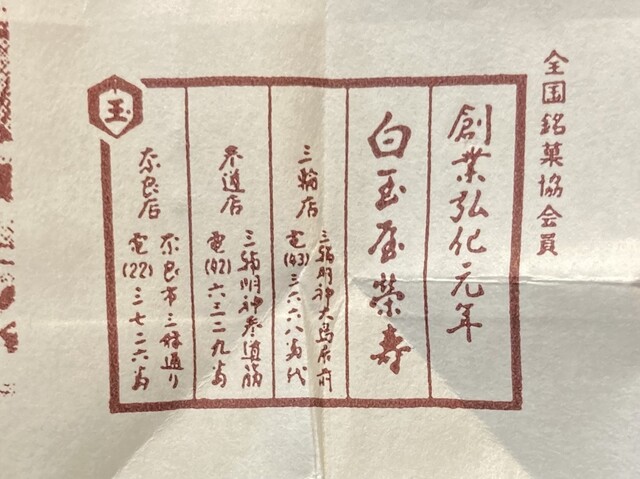 全国銘菓協会員
創業弘化元年
白玉屋榮壽
三輪店
三輪明神大鳥居前
電(43)三六六八番代
参道店
三輪明神参道筋
電(42)六三二九番
奈良店
奈良市三條通り
電(22)三七二六番
玉